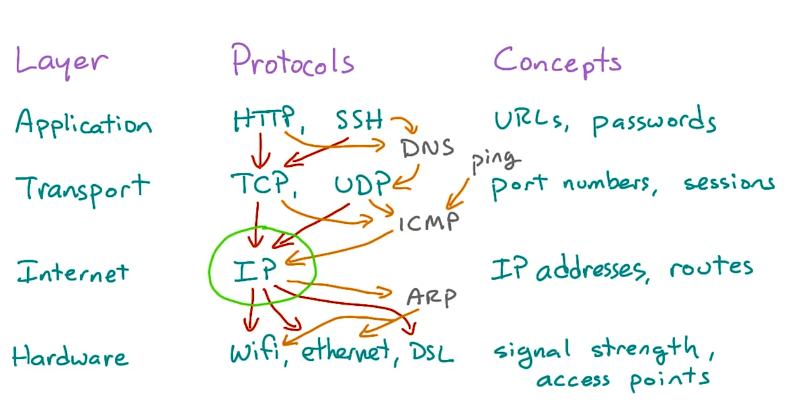 Layer Protocols Concepts
Application HTTP, SSH URLs, passwords
DNS
ping
Transport TCP, UDP port numbers, sessions
ICMP
Internet IP IP addresses, routes
ARP
Hardware Wifi, ethernet, DSL signal strength,
access points